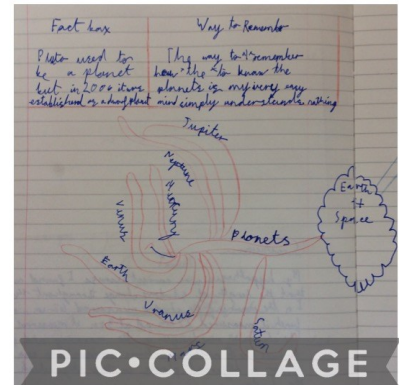 Fact box
Way to Remember
Pluto used to
be a planet
but in 2006 it was
established as a dwarf planet
The way to remember
how the to know the
planets is my very easy
mind simply understands nothing
Jupiter
Neptune
Mercury
Venus
Earth
Uranus
Saturn
Planets
Earth
+
Space
PIC•COLLAGE